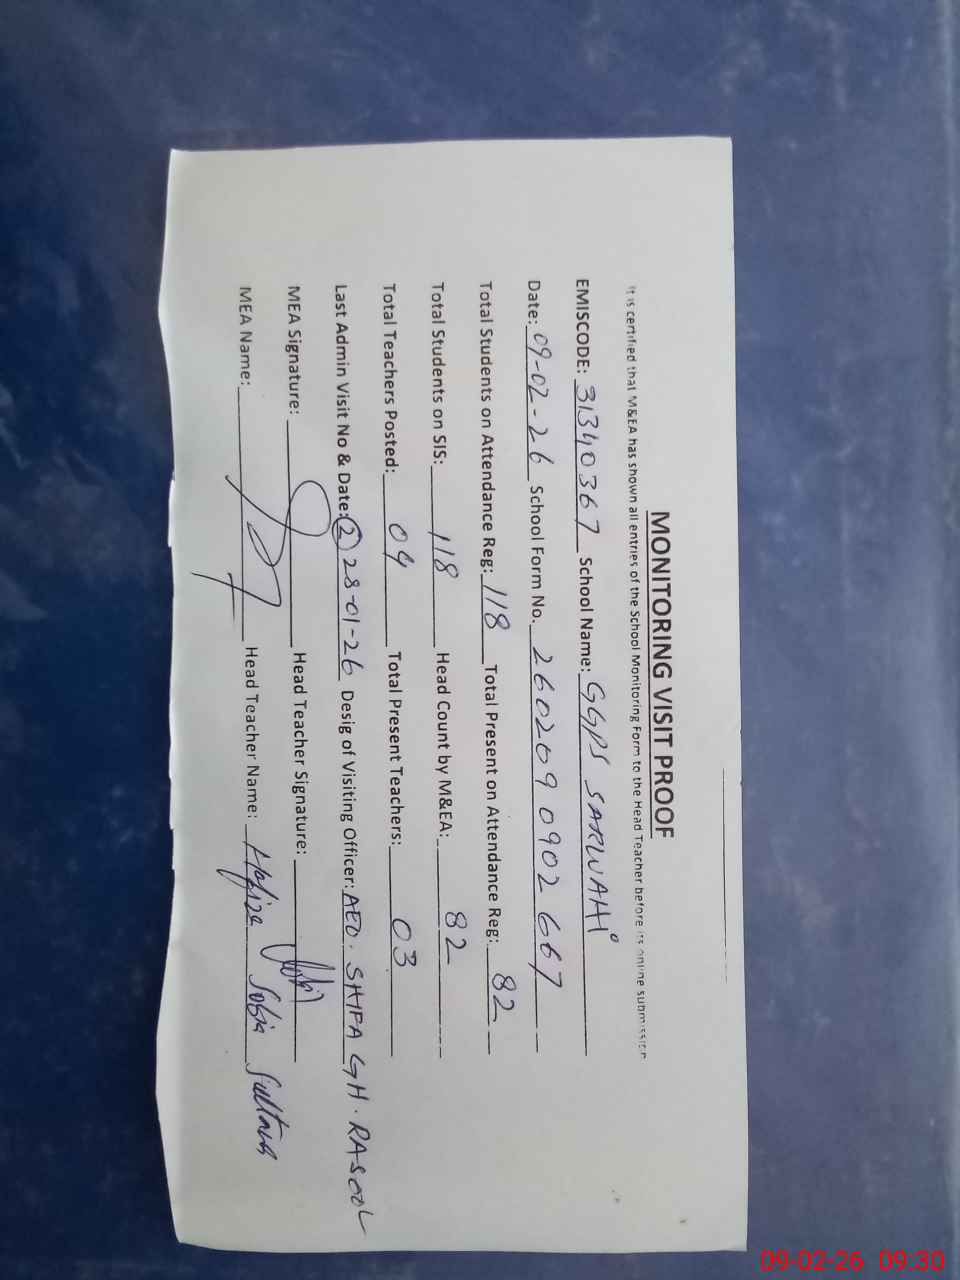 MONITORING VISIT PROOF
It is certified that M&EA has shown all entries of the School Monitoring Form to the Head Teacher before its online submission
EMISCODE: 31340367 School Name: GGPS SARWAH
Date: 09-02-26 School Form No. 2602090902667
Total Students on Attendance Reg: 118 Total Present on Attendance Reg: 82
Total Students on SIS: 118 Head Count by M&EA: 82
Total Teachers Posted: 04 Total Present Teachers: 03
Last Admin Visit No & Date: 2 28-01-26 Desig of Visiting Officer: AEO. SHIFA GH. RASOOL
MEA Signature: Head Teacher Signature:
MEA Name: Head Teacher Name: Hafiza Sobia Sultana
09-02-26 09:30